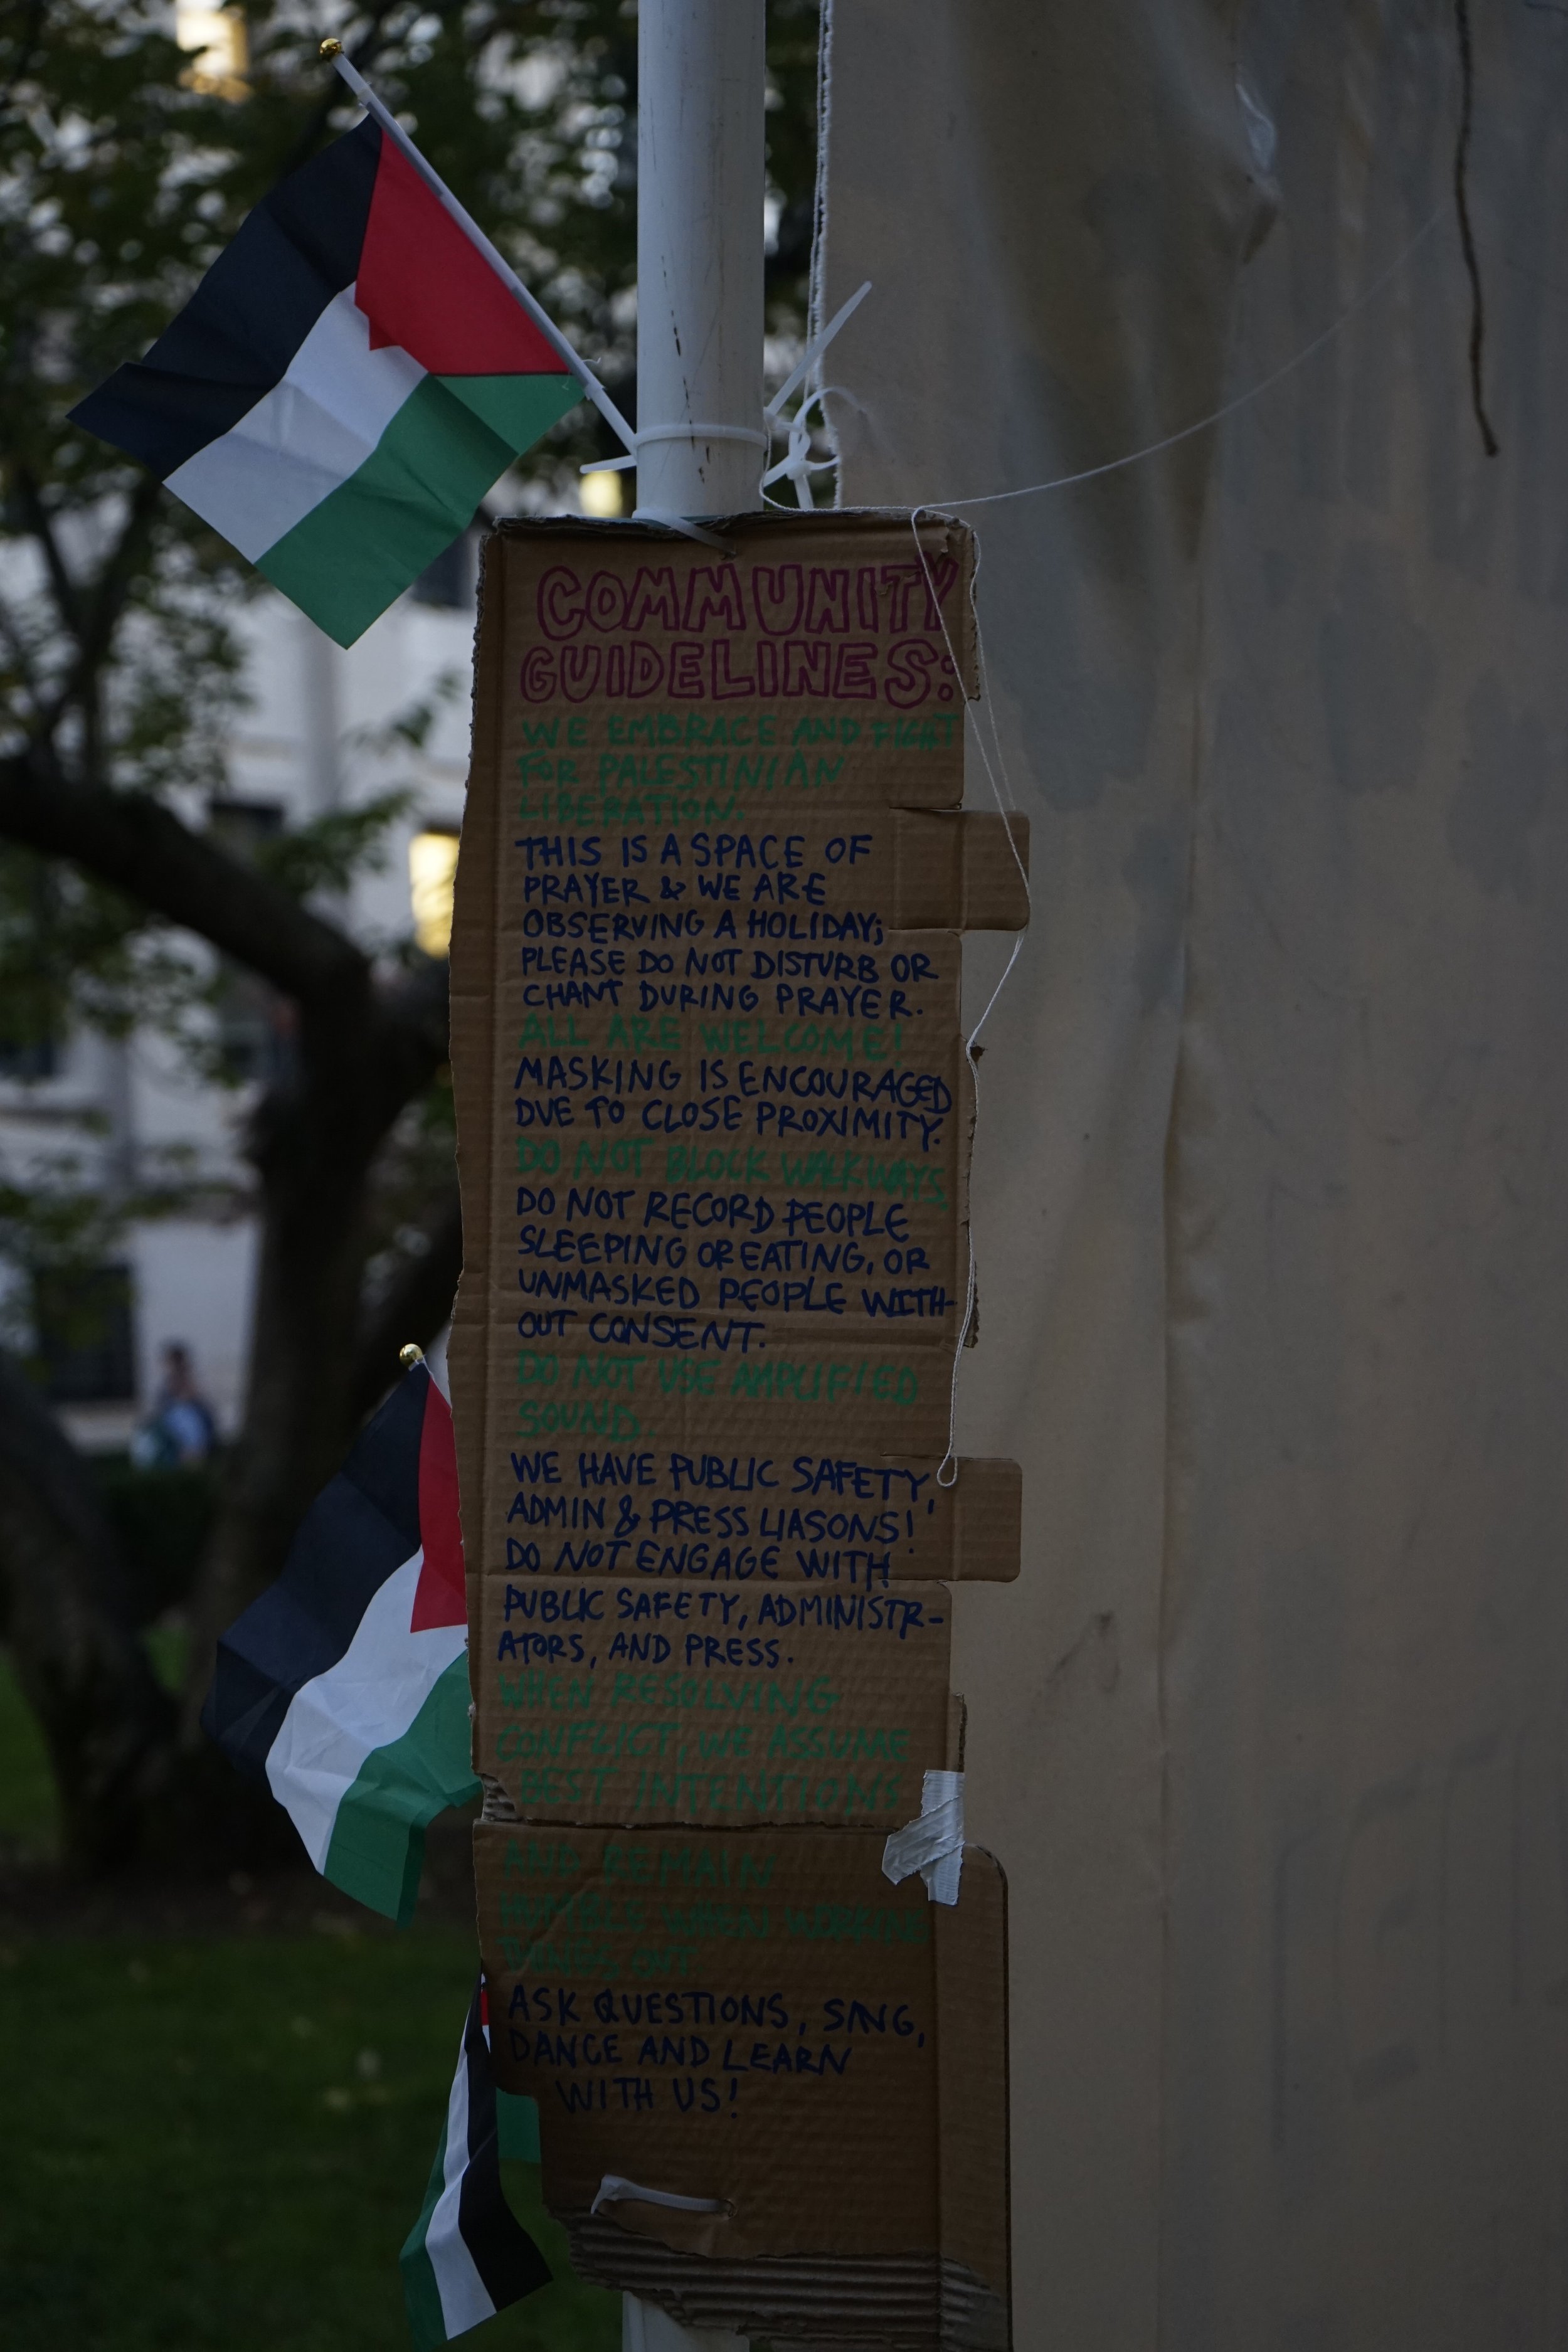 COMMUNITY
GUIDELINES:
WE EMBRACE AND FIGHT
FOR PALESTINIAN
LIBERATION.
THIS IS A SPACE OF
PRAYER & WE ARE
OBSERVING A HOLIDAY;
PLEASE DO NOT DISTURB OR
CHANT DURING PRAYER.
ALL ARE WELCOME!
MASKING IS ENCOURAGED
DUE TO CLOSE PROXIMITY.
DO NOT BLOCK WALKWAYS.
DO NOT RECORD PEOPLE
SLEEPING OR EATING, OR
UNMASKED PEOPLE WITH-
OUT CONSENT.
DO NOT USE AMPLIFIED
SOUND.
WE HAVE PUBLIC SAFETY,
ADMIN & PRESS LIASONS!
DO NOT ENGAGE WITH
PUBLIC SAFETY, ADMINISTR-
ATORS, AND PRESS.
WHEN RESOLVING
CONFLICT, WE ASSUME
BEST INTENTIONS
AND REMAIN
HUMBLE WHEN WORKING
THINGS OUT.
ASK QUESTIONS, SING,
DANCE AND LEARN
WITH US!